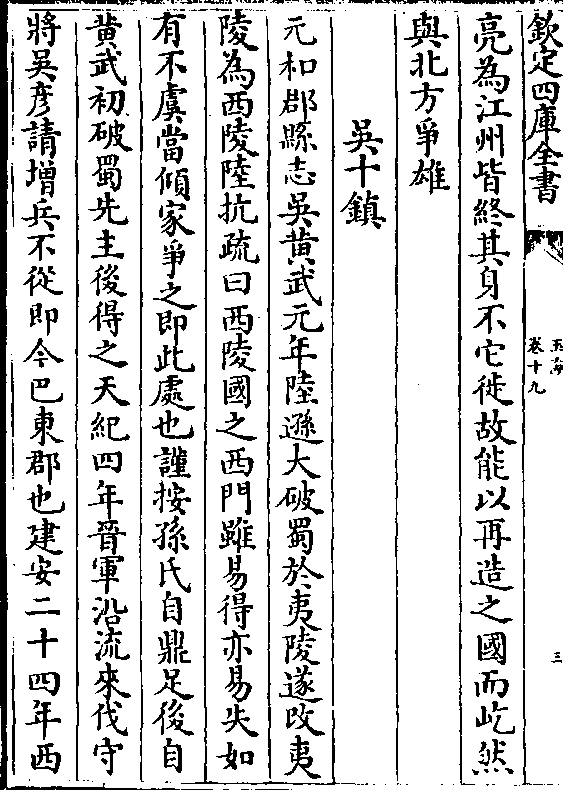 欽定四庫全書
玉海
卷十九
三
亮為江州皆終其身不它徙故能以再造之國而屹然
與北方爭雄
吳十鎮
元和郡縣志吳黄武元年陸遜大破蜀於夷陵遂改夷
陵為西陵陸抗疏曰西陵國之西門雖易得亦易失如
有不虞當傾家爭之即此處也謹按孫氏自鼎足後自
黄武初破蜀先主後得之天紀四年晉軍沿流來伐守
將吳彦請增兵不從即今巴東郡也建安二十四年西